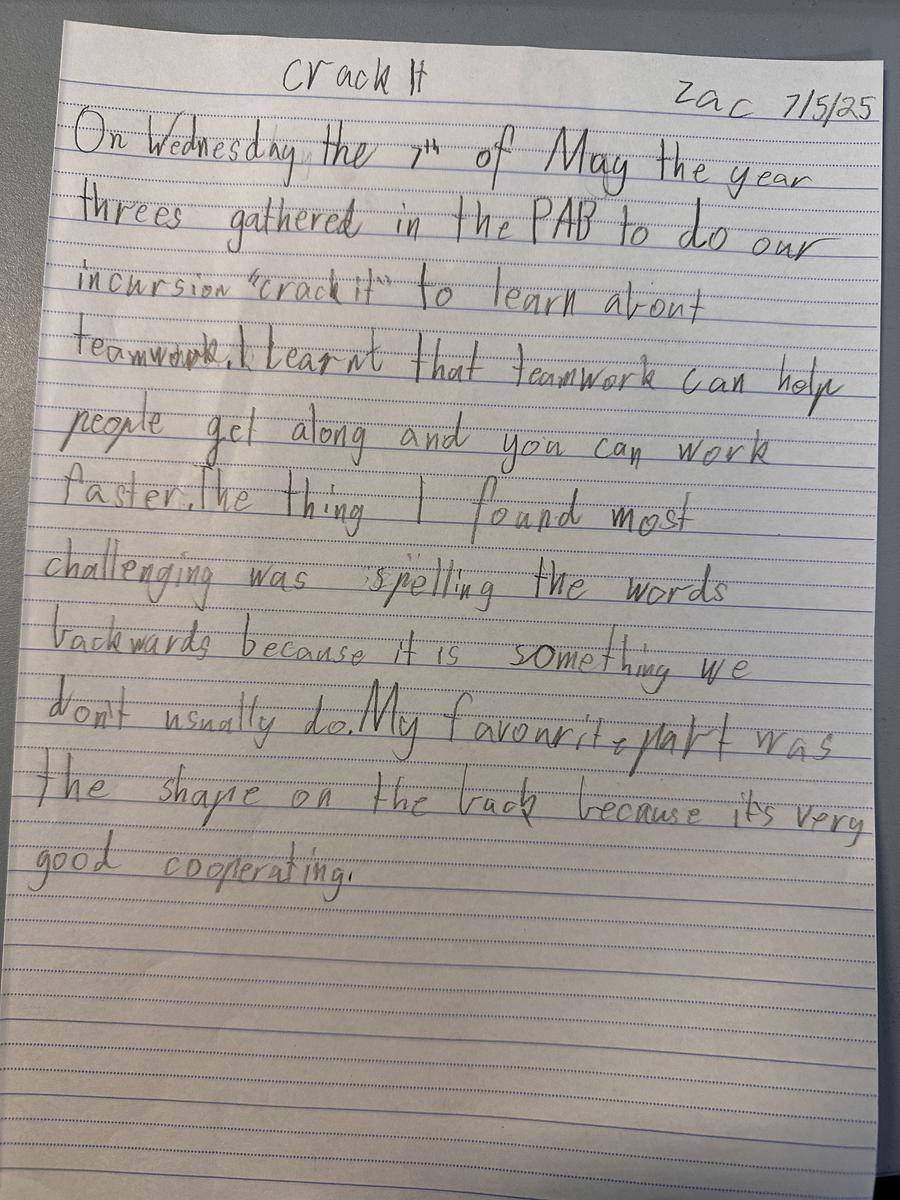 Crack It
Zac 7/5/25
On Wednesday the 7th of May the year
threes gathered in the PAB to do our
incursion "crack it" to learn about
teamwork. I Learnt that teamwork can help
people get along and you can work
faster. The thing I found most
challenging was spelling the words
backwards because it is something we
don't usually do. My favourite part was
the shape on the back because it's very
good cooperating.